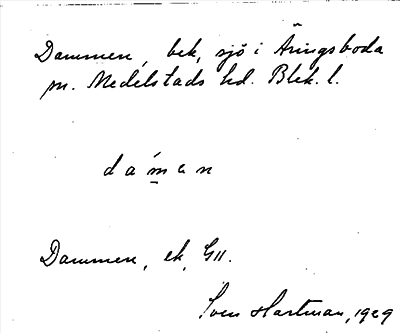 Dammen, bek, sjö i Äringsboda
m. Medelstads hd. Blek. l.
dám̲en
Dammen, ek, G11.
Sven Hartman, 1929